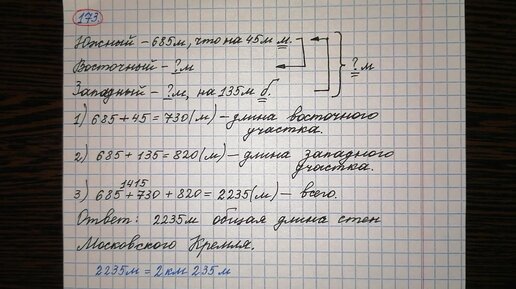 173
Южный – 685м, что на 45м м.
Восточный – ? м
? м
Западный – ? м, на 135м б.
1) 685 + 45 = 730 (м) – длина восточного
участка.
2) 685 + 135 = 820 (м) – длина западного
участка.
1415
3) 685 + 730 + 820 = 2235 (м) – всего.
Ответ: 2235м общая длина стен
Московского Кремля.
2235м = 2 км 235 м